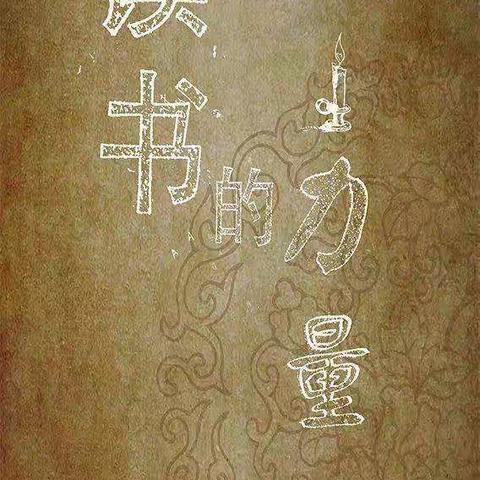 读书
的
力量